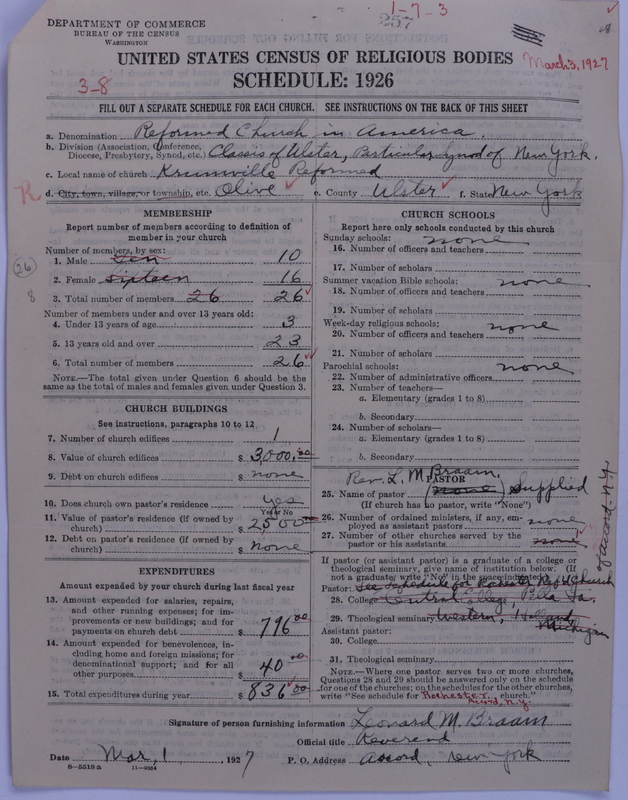 1-7-3
257
DEPARTMENT OF COMMERCE
BUREAU OF THE CENSUS
WASHINGTON
UNITED STATES CENSUS OF RELIGIOUS BODIES
March 3, 1927
SCHEDULE: 1926
3-8
FILL OUT A SEPARATE SCHEDULE FOR EACH CHURCH. SEE INSTRUCTIONS ON THE BACK OF THIS SHEET
a. Denomination Reformed Church in America.
b. Division (Association, Conference, Diocese, Presbytery, Synod, etc.) Classis of Ulster, Particular Synod of New York.
c. Local name of church Krumville Reformed
d. City, town, village, or township, etc. Olive e. County Ulster f. State New York
R
MEMBERSHIP
Report number of members according to definition of
member in your church
Number of members, by sex:
1. Male ten 10
2. Female sixteen 16
3. Total number of members 26 26
Number of members under and over 13 years old:
4. Under 13 years of age 3
5. 13 years old and over 23
6. Total number of members 26
NOTE.—The total given under Question 6 should be
same as the total of males and females given under Question 3.
26
8
CHURCH BUILDINGS
See instructions, paragraphs 10 to 12
7. Number of church edifices 1
8. Value of church edifices $ 3,000.00
9. Debt on church edifices $ none
10. Does church own pastor's residence yes
Yes or No
11. Value of pastor's residence (if owned by
church) $ 2500
12. Debt on pastor's residence (if owned by
church) $ none
EXPENDITURES
Amount expended by your church during last fiscal year
13. Amount expended for salaries, repairs,
and other running expenses; for im-
provements or new buildings; and for
payments on church debt $ 796 00
14. Amount expended for benevolences, in-
cluding home and foreign missions; for
denominational support; and for all
other purposes $ 40 00
15. Total expenditures during year $ 836 00
CHURCH SCHOOLS
Report here only schools conducted by this church
Sunday schools: none
16. Number of officers and teachers
17. Number of scholars
Summer vacation Bible schools: none
18. Number of officers and teachers
19. Number of scholars
Week-day religious schools: none
20. Number of officers and teachers
21. Number of scholars
Parochial schools: none
22. Number of administrative officers
23. Number of teachers—
a. Elementary (grades 1 to 8)
b. Secondary
24. Number of scholars—
a. Elementary (grades 1 to 8)
b. Secondary
PASTOR
Rev. L. M. Braam
25. Name of pastor (none) Supplied
(If church has no pastor, write "None")
26. Number of ordained ministers, if any, em-
ployed as assistant pastors none
27. Number of other churches served by the
pastor or his assistants none
If pastor (or assistant pastor) is a graduate of a college or
theological seminary, give name of institution below: (If
not a graduate, write "No" in the space indicated)
Pastor: See schedule for Rochester Ref'd Church
of Accord, N.Y.
28. College Central College, Pella Ia.
29. Theological seminary Western, Holland
Michigan
Assistant pastor:
30. College
31. Theological seminary
NOTE.—Where one pastor serves two or more churches,
Questions 28 and 29 should be answered only on the schedule
for one of the churches; on the schedules for the other churches,
write "See schedule for Rochester church."
Accord, N.Y.
Signature of person furnishing information Leonard M. Braam
Official title Reverend
Date Mar. 1 1927 P. O. Address Accord, New York
8-5519 a 11-9054